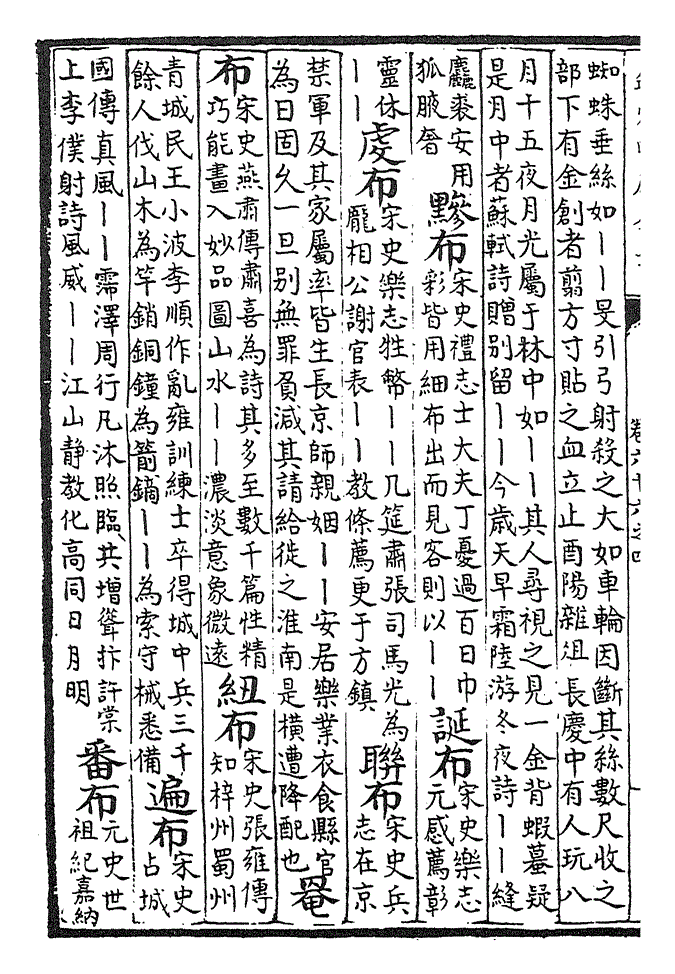 卷六十六之四
蜘蛛垂絲如丨丨旻引弓射殺之大如車輪因斷其絲數尺收之
部下有金創者翦方寸貼之血立止酉陽雜俎長慶中有人玩八
月十五夜月光屬于林中如丨丨其人尋視之見一金背蝦蟇疑
是月中者蘇軾詩贈別留丨丨今歲天早霜陸游冬夜詩丨丨縫
麤裘安用
狐腋
黲布
宋史禮志士大夫丁憂過百日巾
彩皆用細布出而見客則以丨丨
誕布
宋史樂志
元感薦彰
靈休
丨丨
虔布
宋史樂志牲幣丨丨几筵肅張司馬光為
龐相公謝官表丨丨教條薦更于方鎮
聯布
宋史兵
志在京
禁軍及其家屬率皆生長京師親姻丨丨安居樂業衣食縣官
為日固久一旦別無罪負減其請給徙之淮南是橫遭降配也
罨
布
宋史燕肅傳肅喜為詩其多至數千篇性精
巧能畫入妙品圖山水丨丨濃淡意象微遠
紐布
宋史張雍傳
知梓州蜀州
青城民王小波李順作亂雍訓練士卒得城中兵三千
餘人伐山木為竿銷銅鐘為箭鏑丨丨為索守械悉備
遍布
宋史
占城
國傳真風丨丨霈澤周行凡沐照臨共增聳抃許棠
上李僕射詩風威丨丨江山靜教化高同日月明
番布
元史世
祖紀嘉納